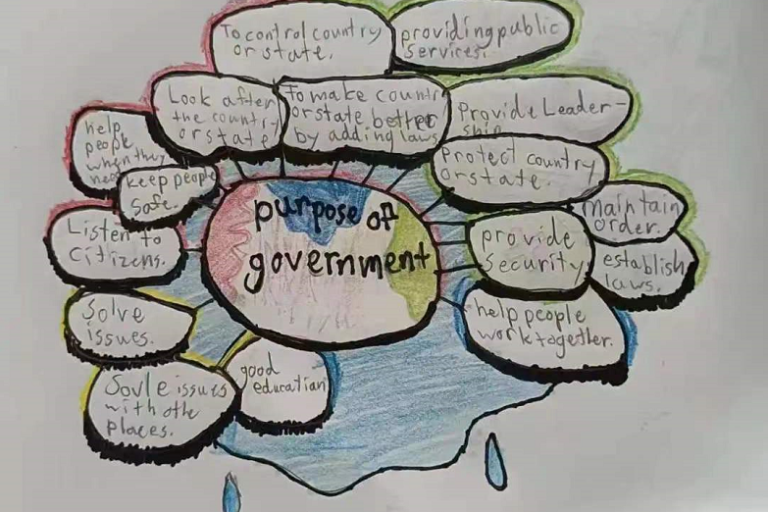 To control country
or state.
providing public
services.
Look after
the country
or state
To make country
or state better
by adding laws
Provide Leader-
ship
help
people
when they
need
keep people
safe.
Protect country
or state.
maintain
order.
purpose of
government
Listen to
citizens.
provide
security
establish
laws.
Solve
issues.
help people
work together.
good
education
Sovle issues
with othe
places.